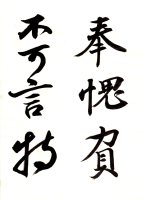 奉愧賀
不可言特